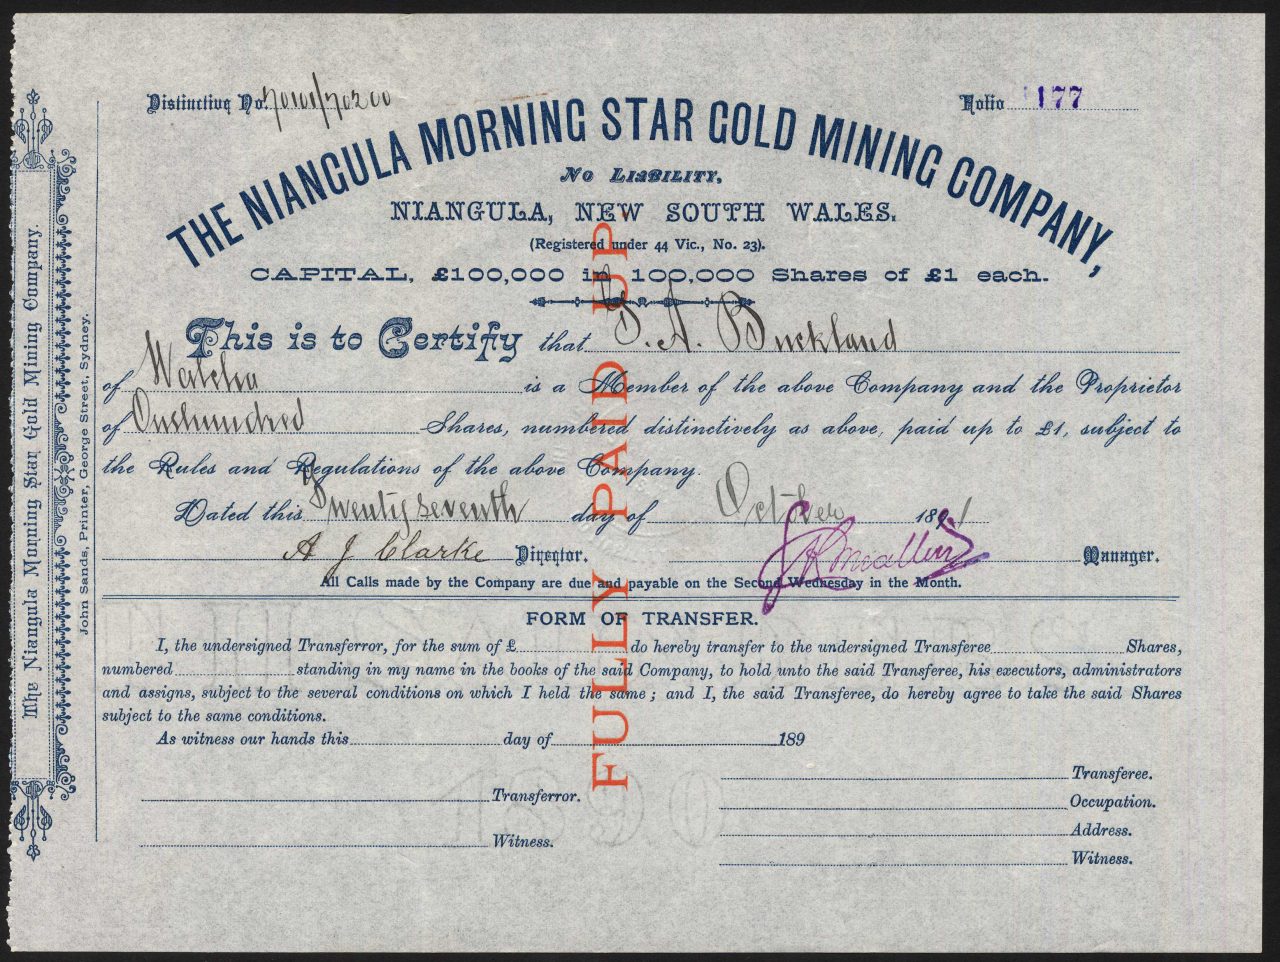 Distinctive No. 70101/70200
Folio 177
THE NIANGULA MORNING STAR GOLD MINING COMPANY,
No LIABILITY,
NIANGULA, NEW SOUTH WALES.
(Registered under 44 Vic., No. 23).
CAPITAL, £100,000 in 100,000 Shares of £1 each.
This is to Certify that F. A. Buckland
of Walcha is a Member of the above Company and the Proprietor
of Onehundred Shares, numbered distinctively as above, paid up to £1, subject to
the Rules and Regulations of the above Company.
Dated this Twentyseventh day of October 1891
A J Clarke Director. Manager.
All Calls made by the Company are due and payable on the Second Wednesday in the Month.
FORM OF TRANSFER.
I, the undersigned Transferror, for the sum of £ do hereby transfer to the undersigned Transferee Shares,
numbered standing in my name in the books of the said Company, to hold unto the said Transferee, his executors, administrators
and assigns, subject to the several conditions on which I held the same; and I, the said Transferee, do hereby agree to take the said Shares
subject to the same conditions.
As witness our hands this day of 189
Transferee.
Transferror.
Occupation.
Address.
Witness.
Witness.
FULLY PAID UP.
The Niangula Morning Star Gold Mining Company.
John Sands, Printer, George Street, Sydney.